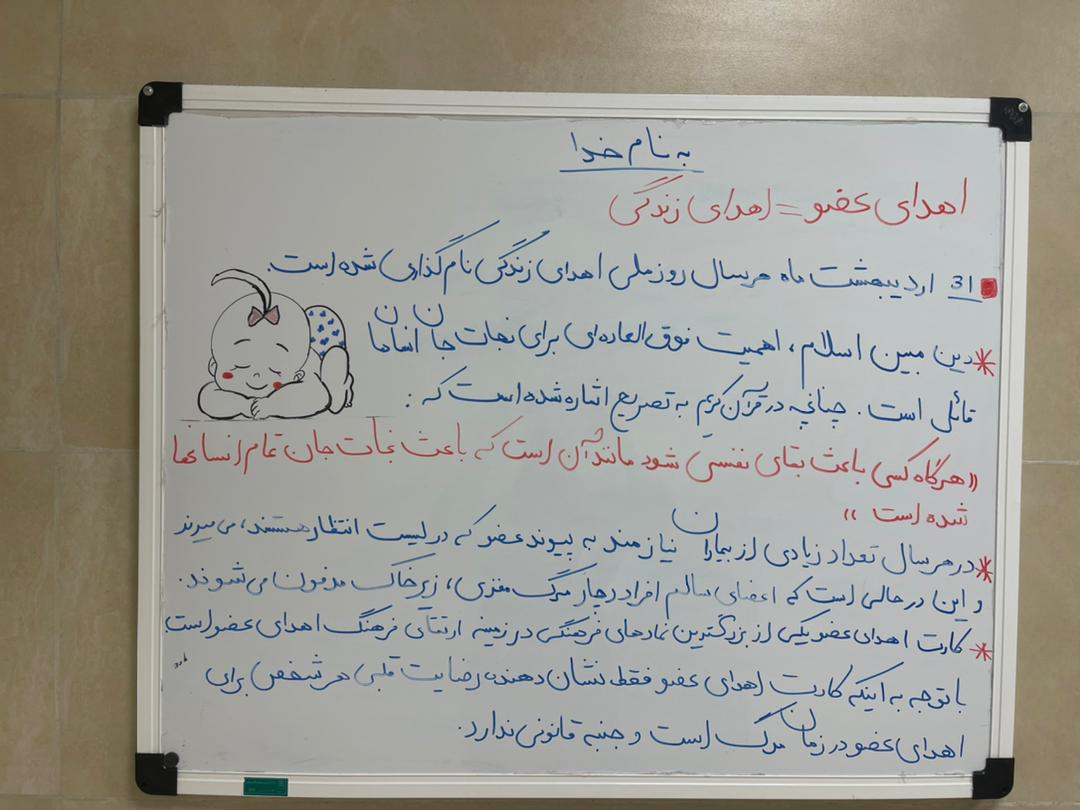 به نام خدا
اهدای عضو = اهدای زندگی
31 اردیبهشت ماه هر سال روز ملی اهدای زندگی نام گذاری شده است.
* دین مبین اسلام، اهمیت فوق العاده‌ای برای نجات جان انسانها
قائل است. چنانچه در قرآن کریم به تصریح اشاره شده است که:
«هرگاه کسی باعث بقای نفسی شود مانند آن است که باعث نجات جان تمام انسانها
شده است»
* در هر سال تعداد زیادی از بیماران نیازمند به پیوند عضو که در لیست انتظار هستند، می‌میرند
و این در حالی است که اعضای سالم افراد دچار مرگ مغزی، زیر خاک مدفون می‌شوند.
* کارت اهدای عضو یکی از بزرگترین نمادهای فرهنگی در زمینه ارتقای فرهنگ اهدای عضو است
با توجه به اینکه کارت اهدای عضو فقط نشان دهنده رضایت قلبی هر شخص برای
اهدای عضو در زمان مرگ است و جنبه قانونی ندارد.